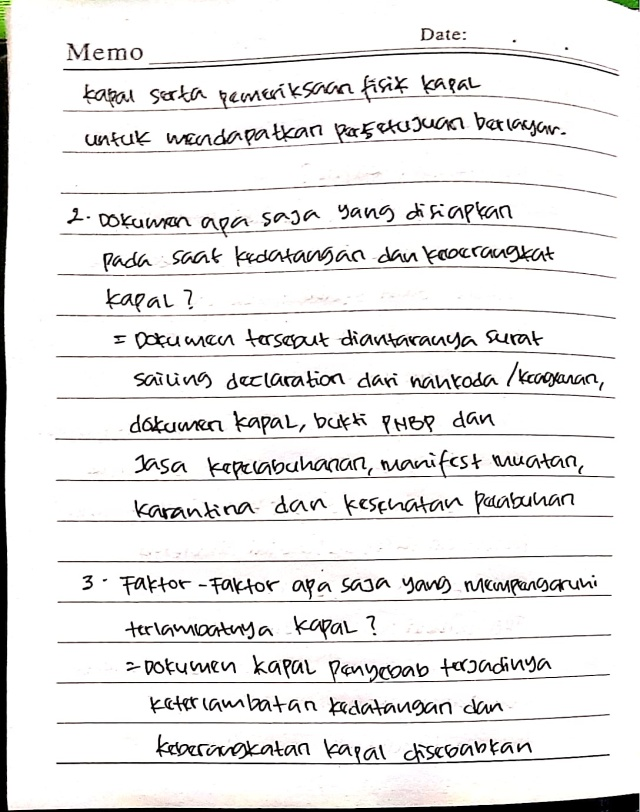 Memo
Date:
kapal serta pemeriksaan fisik kapal
untuk mendapatkan persetujuan berlayar.
2. Dokumen apa saja yang disiapkan
pada saat kedatangan dan keberangkat
kapal?
= Dokumen tersebut diantaranya surat
sailing declaration dari nahkoda /keagenan,
dokumen kapal, bukti PNBP dan
Jasa kepelabuhanan, manifest muatan,
karantina dan kesehatan pelabuhan
3. Faktor-Faktor apa saja yang mempengaruhi
terlambatnya kapal?
= Dokumen kapal penyebab terjadinya
keterlambatan kedatangan dan
keberangkatan kapal disebabkan